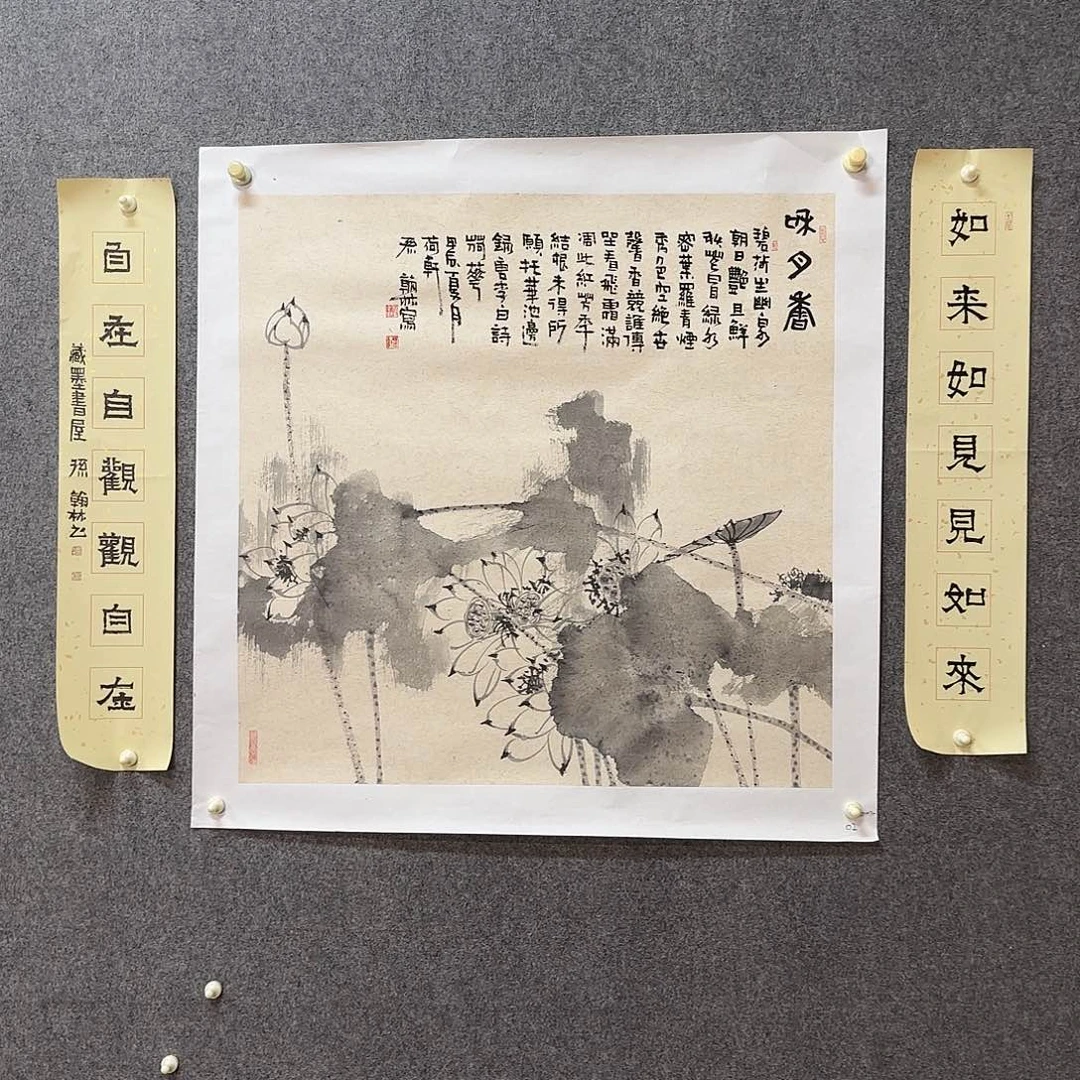 如来如見見如來
月香
碧荷生幽泉
朝日豔且鮮
秋花冒綠水
密葉羅青煙
秀色空絶世
馨香競誰傳
坐看飛霜滿
凋此紅芳年
結根未得所
願托華池邊
錄唐李白詩
甲辰夏月
荷軒
孫翰林寫
自在自觀觀自在
藏墨書屋 孫翰林书